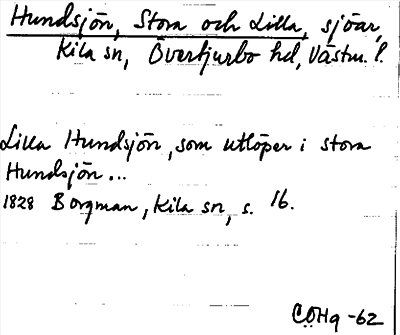 Hundsjön, Stora och Lilla, sjöar,
Kila sn, Övertjurbo hd, Västm. l.
Lilla Hundsjön, som utlöper i stora
Hundsjön...
1828 Borgman, Kila sn, s. 16.
CÖHg -62